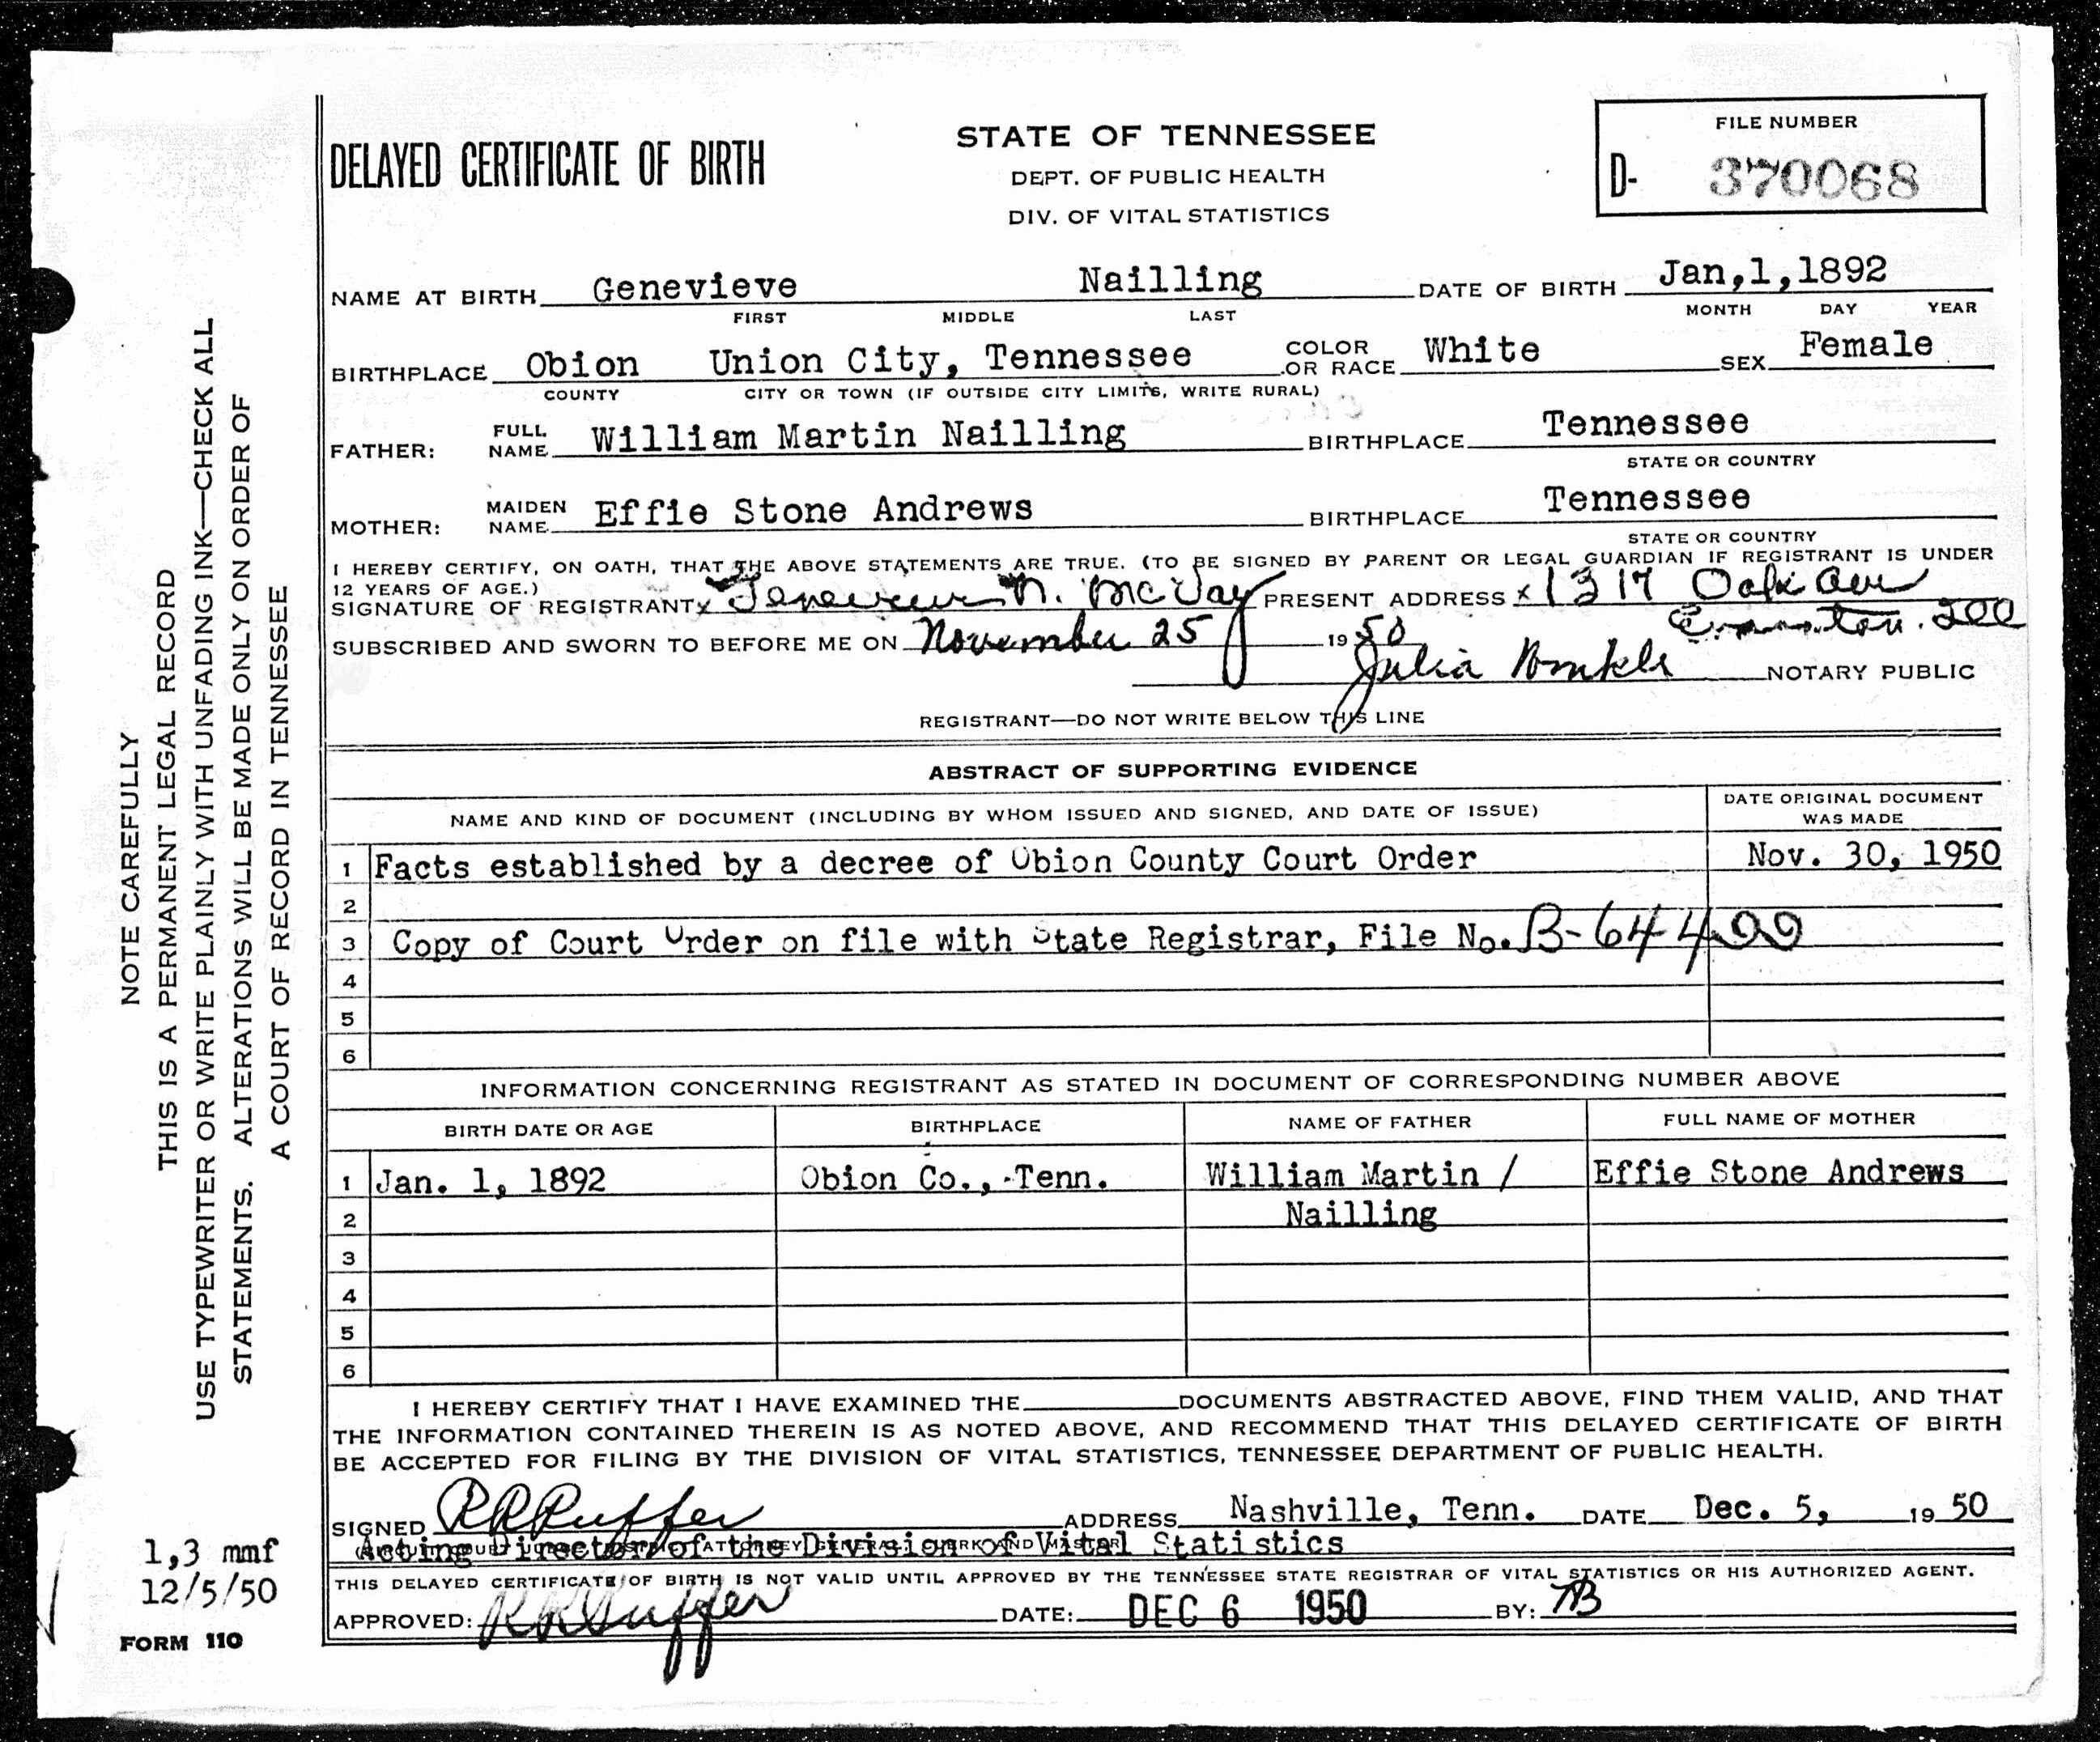 DELAYED CERTIFICATE OF BIRTH
STATE OF TENNESSEE
DEPT. OF PUBLIC HEALTH
DIV. OF VITAL STATISTICS
FILE NUMBER
D- 370068
NAME AT BIRTH Genevieve Nailling DATE OF BIRTH Jan,1,1892
FIRST MIDDLE LAST MONTH DAY YEAR
BIRTHPLACE Obion Union City, Tennessee COLOR OR RACE White SEX Female
COUNTY CITY OR TOWN (IF OUTSIDE CITY LIMITS, WRITE RURAL)
FATHER: FULL NAME William Martin Nailling BIRTHPLACE Tennessee
STATE OR COUNTRY
MOTHER: MAIDEN NAME Effie Stone Andrews BIRTHPLACE Tennessee
STATE OR COUNTRY
I HEREBY CERTIFY, ON OATH, THAT THE ABOVE STATEMENTS ARE TRUE. (TO BE SIGNED BY PARENT OR LEGAL GUARDIAN IF REGISTRANT IS UNDER
12 YEARS OF AGE.)
SIGNATURE OF REGISTRANT x Genevieve N. McVay PRESENT ADDRESS x 1317 Oak Ave
Evanston. Ill
SUBSCRIBED AND SWORN TO BEFORE ME ON November 25 1950
Julia NOTARY PUBLIC
REGISTRANT—DO NOT WRITE BELOW THIS LINE
ABSTRACT OF SUPPORTING EVIDENCE
NAME AND KIND OF DOCUMENT (INCLUDING BY WHOM ISSUED AND SIGNED, AND DATE OF ISSUE) DATE ORIGINAL DOCUMENT WAS MADE
1 Facts established by a decree of Obion County Court Order Nov. 30, 1950
2
3 Copy of Court Order on file with State Registrar, File No. B-64400
4
5
6
INFORMATION CONCERNING REGISTRANT AS STATED IN DOCUMENT OF CORRESPONDING NUMBER ABOVE
BIRTH DATE OR AGE BIRTHPLACE NAME OF FATHER FULL NAME OF MOTHER
1 Jan. 1, 1892 Obion Co., Tenn. William Martin / Effie Stone Andrews
2 Nailling
3
4
5
6
I HEREBY CERTIFY THAT I HAVE EXAMINED THE DOCUMENTS ABSTRACTED ABOVE, FIND THEM VALID, AND THAT
THE INFORMATION CONTAINED THEREIN IS AS NOTED ABOVE, AND RECOMMEND THAT THIS DELAYED CERTIFICATE OF BIRTH
BE ACCEPTED FOR FILING BY THE DIVISION OF VITAL STATISTICS, TENNESSEE DEPARTMENT OF PUBLIC HEALTH.
SIGNED RR Ruffer ADDRESS Nashville, Tenn. DATE Dec. 5, 1950
Acting Director of the Division of Vital Statistics
THIS DELAYED CERTIFICATE OF BIRTH IS NOT VALID UNTIL APPROVED BY THE TENNESSEE STATE REGISTRAR OF VITAL STATISTICS OR HIS AUTHORIZED AGENT.
APPROVED: RR Ruffer DATE: DEC 6 1950 BY: MB
NOTE CAREFULLY
THIS IS A PERMANENT LEGAL RECORD
USE TYPEWRITER OR WRITE PLAINLY WITH UNFADING INK—CHECK ALL
STATEMENTS. ALTERATIONS WILL BE MADE ONLY ON ORDER OF
A COURT OF RECORD IN TENNESSEE
1,3 mmf
12/5/50
FORM 110